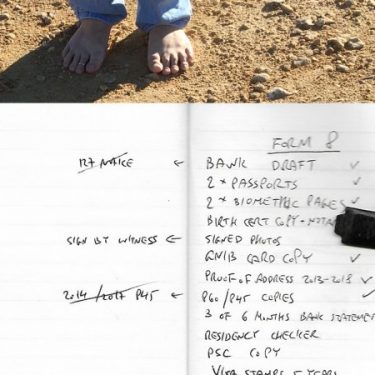 FORM 8
127 NOTICE ← BANK DRAFT ✓
2 * PASSPORTS ✓
2 * BIOMETRIC PAGES ✓
BIRTH CERT COPY +
SIGN BY WITNESS ← SIGNED PHOTOS
GNIB CARD COPY ✓
PROOF OF ADDRESS 2013-2018 ✓
2014/2017 P45 ← P60/P45 COPIES ✓
3 OF 6 MONTHS BANK STATEMENT
RESIDENCY CHECKER
PSC COPY
VISA STAMPS 5 YEARS